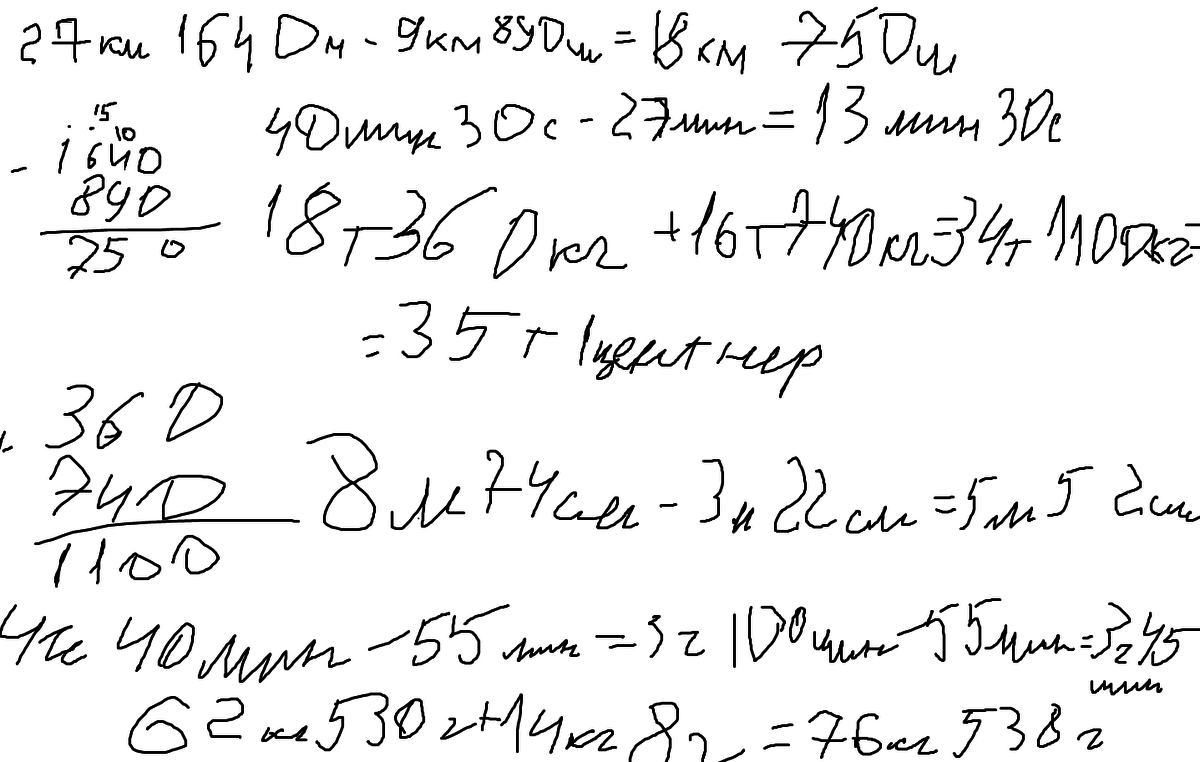 27км 1640м - 9км 890м = 18 км 750м
15
10
- 1640
890
750
40мин 30с - 27мин = 13 мин 30с
18т 360кг + 16т 740кг = 34т 1100кг =
= 35т 1центнер
360
740
1100
8м 74см - 3м 22см = 5м 52см
4ч 40мин - 55мин = 3ч 100мин - 55мин = 3ч 45
мин
62кг 530г + 14кг 8г = 76кг 538г